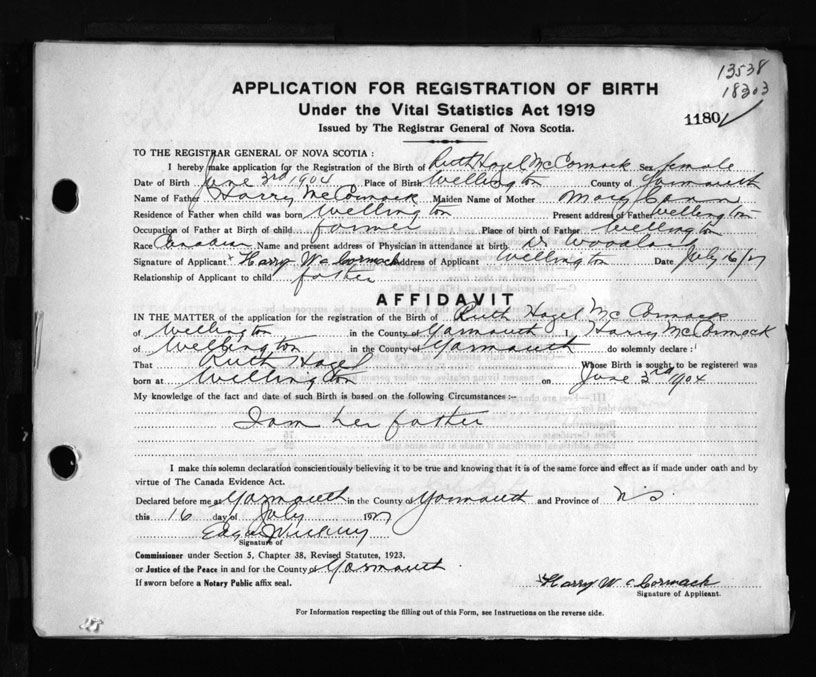 13538
18303
APPLICATION FOR REGISTRATION OF BIRTH
Under the Vital Statistics Act 1919
Issued by The Registrar General of Nova Scotia.
1180
TO THE REGISTRAR GENERAL OF NOVA SCOTIA :
I hereby make application for the Registration of the Birth of Ruth Hazel McCormack Sex female
Date of Birth June 3rd 1904 Place of Birth Wellington County of Yarmouth
Name of Father Harry McCormack Maiden Name of Mother Mary Cann
Residence of Father when child was born Wellington Present address of Father Wellington
Occupation of Father at Birth of child farmer Place of birth of Father Wellington
Race Canadian Name and present address of Physician in attendance at birth Dr
Signature of Applicant Harry McCormack Address of Applicant Wellington Date July 16/27
Relationship of Applicant to child father
AFFIDAVIT
IN THE MATTER of the application for the registration of the Birth of Ruth Hazel McCormack
of Wellington in the County of Yarmouth I Harry McCormack
of Wellington in the County of Yarmouth do solemnly declare :
That Ruth Hazel Whose Birth is sought to be registered was
born at Wellington on June 3rd 1904
My knowledge of the fact and date of such Birth is based on the following Circumstances :-
I am her father
I make this solemn declaration conscientiously believing it to be true and knowing that it is of the same force and effect as if made under oath and by
virtue of The Canada Evidence Act.
Declared before me at Yarmouth in the County of Yarmouth and Province of N.S.
this 16 day of July 1927
Signature of
Commissioner under Section 5, Chapter 38, Revised Statutes, 1923.
or Justice of the Peace in and for the County of Yarmouth
If sworn before a Notary Public affix seal.
Harry McCormack
Signature of Applicant.
For Information respecting the filling out of this Form, see Instructions on the reverse side.